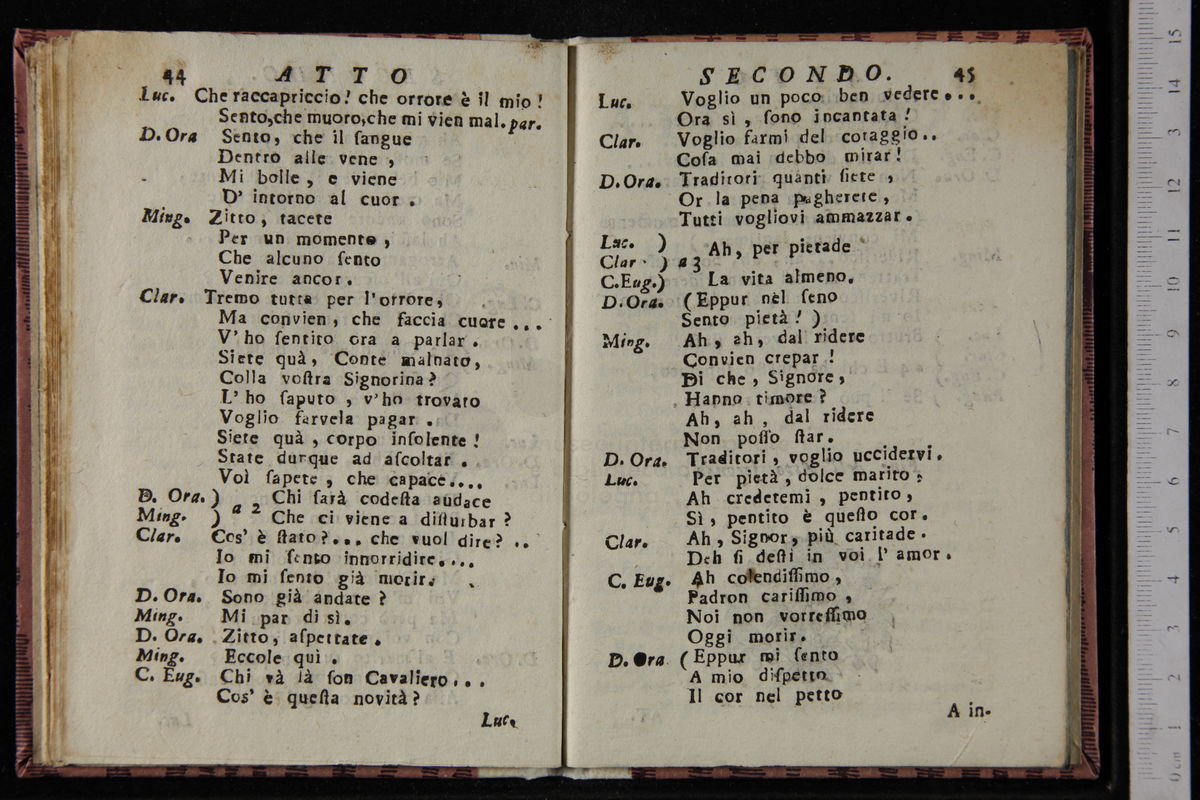 44 ATTO
Luc. Che raccapriccio! che orrore è il mio!
Sento,che muoro,che mi vien mal.par.
D.Ora Sento, che il ſangue
Dentro alle vene,
Mi bolle, e viene
D'intorno al cuor.
Ming. Zitto, tacete
Per un momento,
Che alcuno ſento
Venire ancor.
Clar. Tremo tutta per l'orrore,
Ma convien, che faccia cuore...
V'ho ſentito ora a parlar.
Siete quà, Conte malnato,
Colla voſtra Signorina?
L'ho ſaputo, v'ho trovato
Voglio farvela pagar.
Siete quà, corpo inſolente!
State durque ad aſcoltar.
Voì ſapete, che capace....
D. Ora.) Chi ſarà codeſta audace
Ming. ) a 2 Che ci viene a diſturbar?
Clar. Cos'è ſtato?... che vuol dire? ..
Io mi ſento innorridire....
Io mi ſento già morir.
D. Ora. Sono già andate?
Ming. Mi par di sì.
D. Ora. Zitto, aſpettate.
Ming. Eccole quì.
C. Eug. Chi và là ſon Cavaliero...
Cos'è queſta novità?
Luc.
SECONDO. 45
Luc. Voglio un poco ben vedere...
Ora sì, ſono incantata!
Clar. Voglio farmi del coraggio..
Coſa mai debbo mirar!
D. Ora. Traditori quanti ſiete,
Or la pena pagherete,
Tutti vogliovi ammazzar.
Luc. )
Clar. ) a 3 Ah, per pietade
C.Eug.) La vita almeno.
D. Ora. (Eppur nèl ſeno
Sento pietà!)
Ming. Ah, ah, dal ridere
Convien crepar!
Di che, Signore,
Hanno timore?
Ah, ah, dal ridere
Non poſſo ſtar.
D. Ora. Traditori, voglio uccidervi.
Luc. Per pietà, dolce marito;
Ah credetemi, pentito,
Sì, pentito è queſto cor.
Clar. Ah, Signor, più caritade.
Deh ſi deſti in voi l'amor.
C. Eug. Ah colendiſſimo,
Padron cariſſimo,
Noi non vorreſſimo
Oggi morir.
D. Ora (Eppur mi ſento
A mio diſpetto
Il cor nel petto
A in-
0 cm 1 2 3 4 5 6 7 8 9 10 11 12 13 14 15